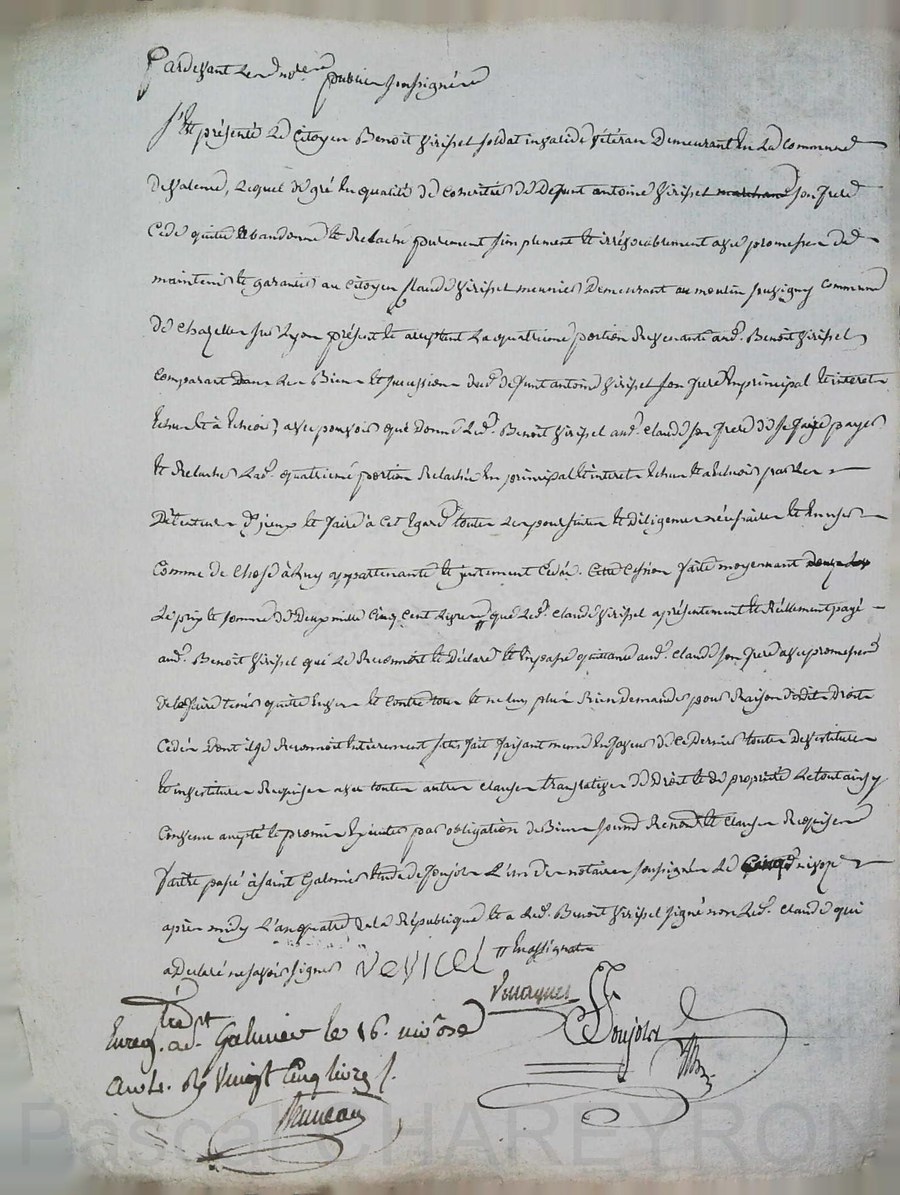 Pardevant les notaires publics soussignés
S'est présenté le Citoyen Benoit Viricel soldat invalide vétéran demeurant en la commune
de valence, lequel de gré en qualité de coheritier de deffunt antoine Viricel marchand son frere
Cede quitte abandonne et relache purement simplement et irrévocablement avec promesse de
maintenir et garantir au Citoyen Claude Viricel meunier demeurant au moulin commune
de Chazelles sur Lyon présent et acceptant la quatrieme portion revenante aud. Benoit Viricel
comparant dans les Biens et succession dud. defunt antoine Viricel son frere en principal et interets
Echus et à Echoir, avec pouvoir que donne led. Benoit Viricel aud. Claude son frere de se faire payer
et relacher lad. quatrieme portion relachée en principal et interets Echus et a Echoir par les
Détenteurs d'iceux et faire à cet Egard toutes les poursuites et diligences nécessaires et en user
Comme de Chose à luy appartenante et justement cédée. Cette Cession faite moyennant
Le prix et somme de Deux mille Cinq Cent Livres que led. Claude Viricel a présentement et réellement payé
aud. Benoit Viricel qui le reconnoit et déclare et en passe quittance aud. Claude son frere avec promesse
de le faire tenir quitte Envers et contre tous et ne luy plus Rien demander pour Raison desdits droits
Cedés dont il se reconnoit Entierement satisfait faisant meme en faveur de ce dernier toutes devestitures
et investitures Requises avec toutes autres clauses translatives de droit et de propriété Le tout ainsy
Convenu accepté et promis Executer par obligation de Biens et clauses Requises
Fait et passé à Saint Galmier Etude de Poujols L'un des notaires soussignés Le Cinq nivose
après midy L'an quatre de la République et a led. Benoit Viricel signé non led. Claude qui
a Declaré ne savoir signer
Vericel
Poujols
Enreg. à St Galmier le 16. nivose
an 4. R. Vingt Cinq livres